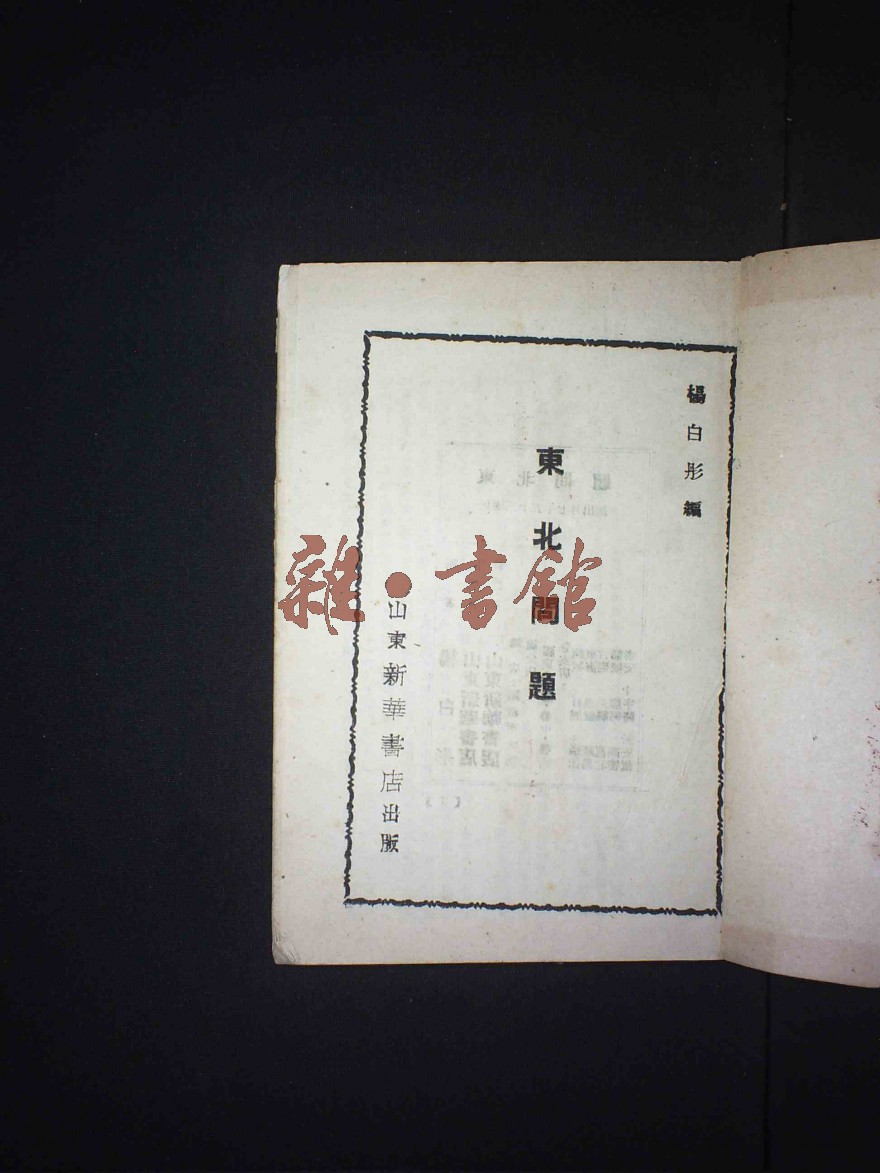 楊白彤編
東北問題
山東新華書店出版
雜·書館